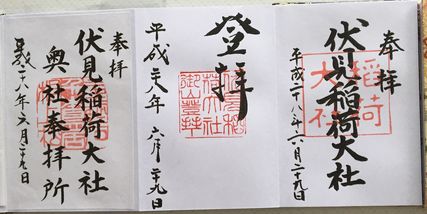 奉拝
伏見稲荷大社
稲荷
大社
平成二十八年六月二十九日
登拝
伏見稲
荷大社
御山登拝
平成二十八年 六月二十九日
奉拝
伏見稲荷大社
奥社奉拝所
平成二十八年六月二十九日